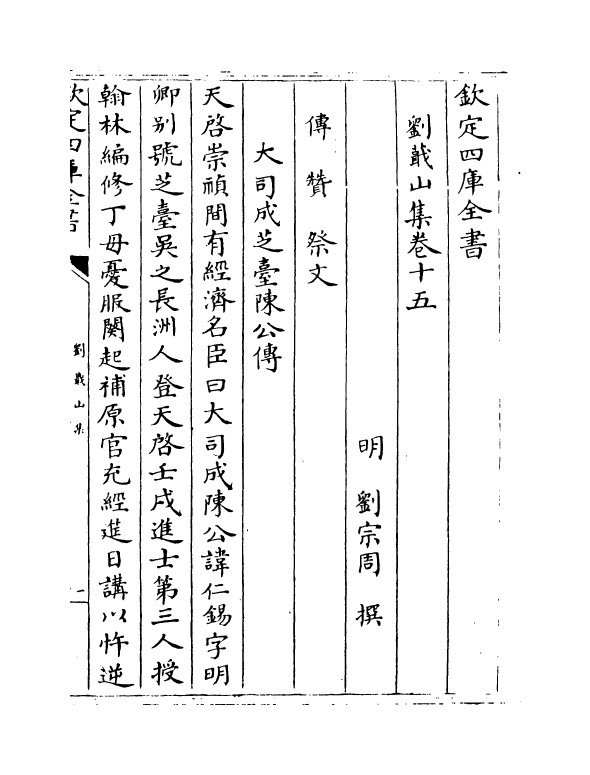 欽定四庫全書
劉蕺山集卷十五
明 劉宗周 撰
傳 贊 祭文
大司成芝臺陳公傳
天啓崇禎間有經濟名臣曰大司成陳公諱仁錫字明
卿别號芝臺吳之長洲人登天啓壬戌進士第三人授
翰林編修丁母憂服闋起補原官充經筵日講以忤逆
欽定四庫全書
劉蕺山集
一